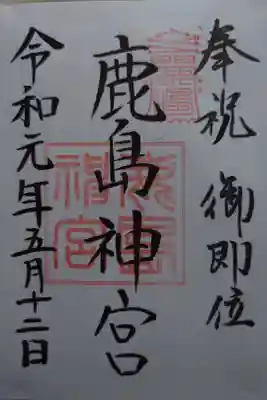 奉祝 御即位
鹿島神宮
令和元年五月十二日